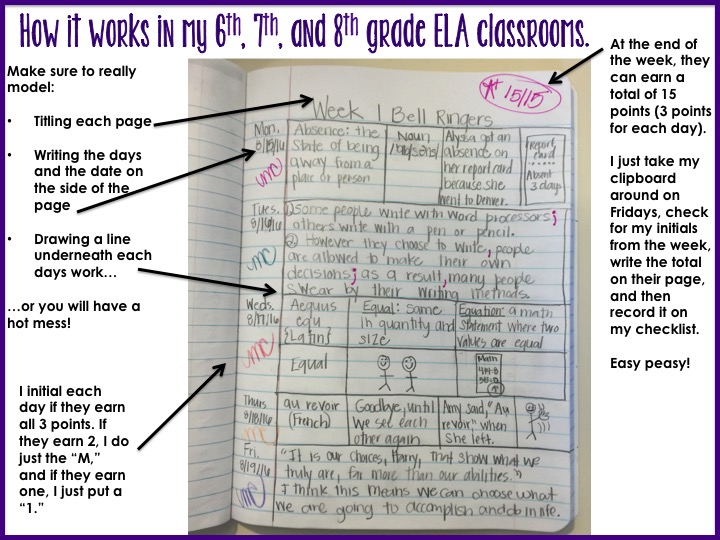 How it works in my 6th, 7th, and 8th grade ELA classrooms.
Make sure to really
model:
• Titling each page
• Writing the days
and the date on
the side of the
page
• Drawing a line
underneath each
days work…
…or you will have a
hot mess!
I initial each
day if they earn
all 3 points. If
they earn 2, I do
just the “M,”
and if they earn
one, I just put a
“1.”
15/15
Week 1 Bell Ringers
Mon.
8/15/16
mc
Absence: the
state of being
away from a
place or person
Noun
Alyssa got an
absence on
her report card
because she
went to Denver.
report
card
Absent
3 days
Tues.
8/16/16
mc
① Some people write with word processors;
others write with a pen or pencil.
② However they choose to write, people
are allowed to make their own
decisions; as a result, many people
swear by their writing methods.
Weds.
8/17/16
mc
Aequus
equ
{Latin}
Equal: same
in quantity and
size
Equation: a math
statement where two
values are equal
Equal
Math
Thurs
8/18/16
mc
au revoir
(French)
Goodbye, until
we see each
other again
Amy said, "Au
revoir" when
she left.
Fri.
8/19/16
mc
"It is our choices, Harry, that show what we
truly are, far more than our abilities."
I think this means we can choose what
we are going to accomplish and do in life.
At the end of
the week, they
can earn a
total of 15
points (3 points
for each day).
I just take my
clipboard
around on
Fridays, check
for my initials
from the week,
write the total
on their page,
and then
record it on
my checklist.
Easy peasy!